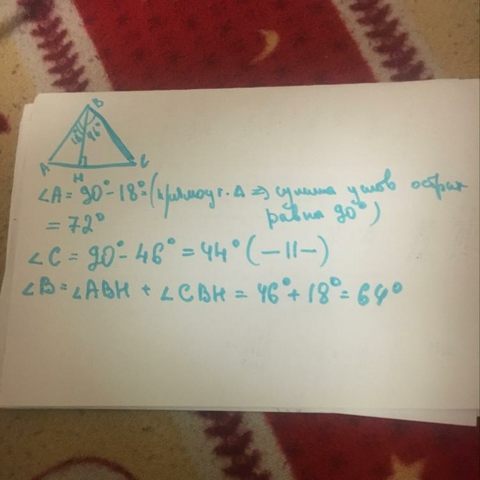 B
18° 46°
A H C
∠A = 90° - 18° = (прямоуг. Δ ⇒ сумма углов острых
= 72° равна 90°)
∠C = 90° - 46° = 44° (-||-)
∠B = ∠ABH + ∠CBH = 46° + 18° = 64°